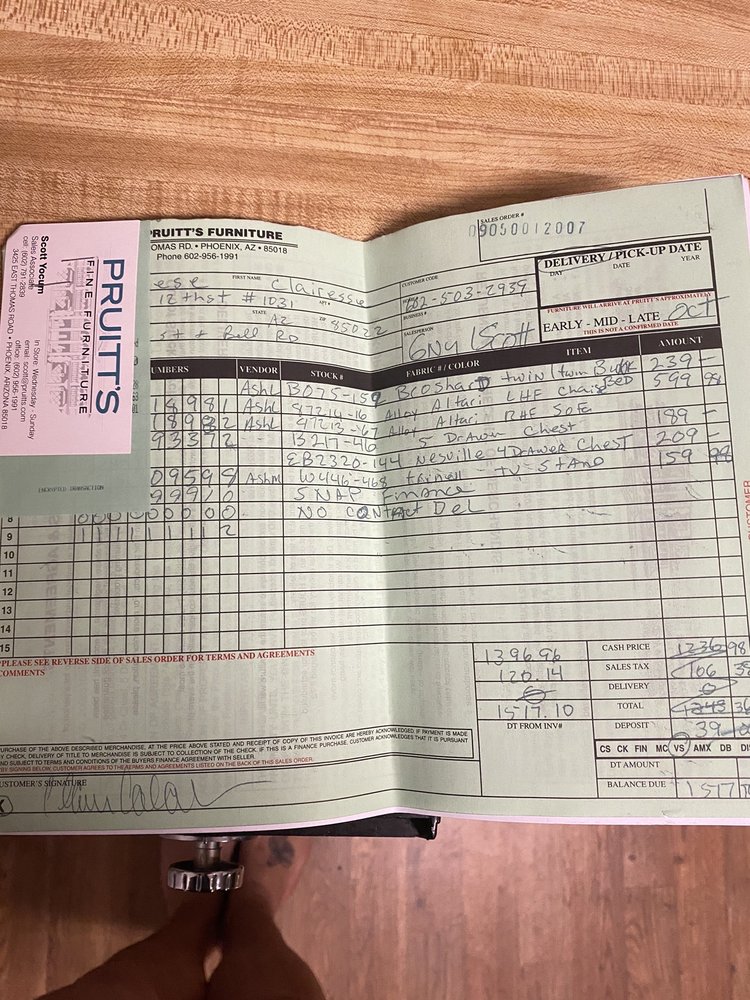 PRUITT'S
FINE FURNITURE
Scott Yocum
Sales Associate
cell (602) 791 2839
In Store Wednesday - Sunday
email: scott@pruitts.com
office: (602) 956-1991
3425 EAST THOMAS ROAD • PHOENIX, ARIZONA 85018
ENCRYPTED TRANSACTION
PRUITT'S FURNITURE
OMAS RD. • PHOENIX, AZ • 85018
Phone 602-956-1991
SALES ORDER #
09050012007
DELIVERY / PICK-UP DATE
DAY DATE YEAR
FURNITURE WILL ARRIVE AT PRUITT'S APPROXIMATELY
EARLY - MID - LATE Oct
THIS IS NOT A CONFIRMED DATE
ese FIRST NAME Clairessie CUSTOMER CODE
12 thst # 1031 APT # 602-503-2939
STATE AZ ZIP 85022 BUSINESS #
st + Bell RD SALESPERSON Scott
UMBERS VENDOR STOCK # FABRIC # / COLOR ITEM AMOUNT
Ashl B075-159 Broshard twin/twin Bunk Bed 239 -
18981 Ashl 87214-16 Alloy Altari LHF chaise 599 98
18982 Ashl 87213-67 Alloy Altari RHF Sofa
93392 B217-46 5 Drawer Chest 189 -
EB2320-144 Nesville 4 Drawer Chest 209 -
09599 Ashm W446-468 trinell - TV Stand 159 98
99910 SNAP Finance
000000000 NO CONtract Del
8
9 111111112
10
11
12
13
14
15
PLEASE SEE REVERSE SIDE OF SALES ORDER FOR TERMS AND AGREEMENTS
COMMENTS
1396.96 CASH PRICE 1236 98
120.14 SALES TAX 106 38
0 DELIVERY 0
1517.10 TOTAL 1343 36
DT FROM INV# DEPOSIT 39
CS CK FIN MC VS AMX DB DI
DT AMOUNT
BALANCE DUE 1577 10
PURCHASE OF THE ABOVE DESCRIBED MERCHANDISE, AT THE PRICE ABOVE STATED AND RECEIPT OF COPY OF THIS INVOICE ARE HEREBY ACKNOWLEDGED. IF PAYMENT IS MADE
BY CHECK, DELIVERY OF TITLE TO MERCHANDISE IS SUBJECT TO COLLECTION OF THE CHECK. IF THIS IS A FINANCE PURCHASE, CUSTOMER ACKNOWLEDGES THAT IT IS PURSUANT
AND SUBJECT TO TERMS AND CONDITIONS OF THE BUYERS FINANCE AGREEMENT WITH SELLER.
BY SIGNING BELOW, CUSTOMER AGREES TO THE TERMS AND AGREEMENTS LISTED ON THE BACK OF THIS SALES ORDER.
CUSTOMER'S SIGNATURE
X
CUSTOMER